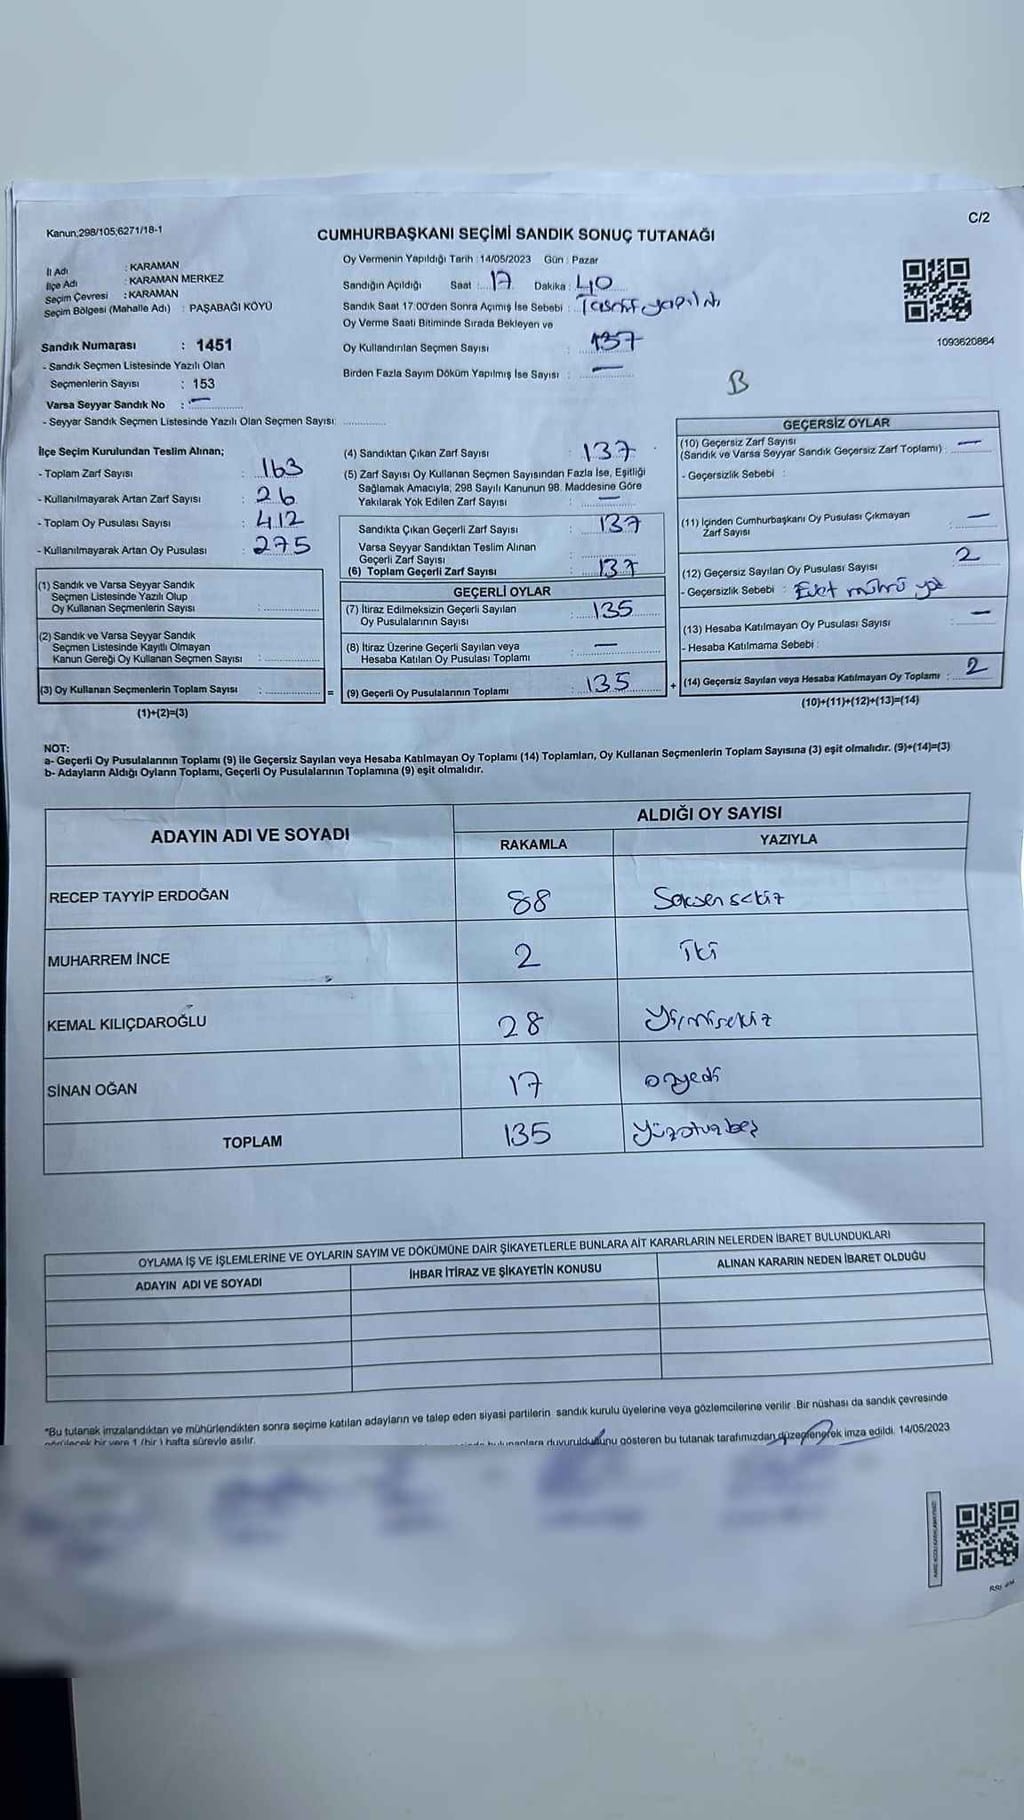 Kanun:298/105;6271/18-1
C/2
CUMHURBAŞKANI SEÇİMİ SANDIK SONUÇ TUTANAĞI
İl Adı : KARAMAN
İlçe Adı : KARAMAN MERKEZ
Seçim Çevresi : KARAMAN
Seçim Bölgesi (Mahalle Adı) : PAŞABAĞI KÖYÜ
Sandık Numarası : 1451
- Sandık Seçmen Listesinde Yazılı Olan
Seçmenlerin Sayısı : 153
Varsa Seyyar Sandık No : —
- Seyyar Sandık Seçmen Listesinde Yazılı Olan Seçmen Sayısı:
Oy Vermenin Yapıldığı Tarih : 14/05/2023 Gün : Pazar
Sandığın Açıldığı Saat : 17 Dakika : 40
Sandık Saat 17:00'den Sonra Açımış İse Sebebi : Tasnif yapıldı
Oy Verme Saati Bitiminde Sırada Bekleyen ve
Oy Kullandırılan Seçmen Sayısı : 137
Birden Fazla Sayım Döküm Yapılmış İse Sayısı : —
1093620864
B
İlçe Seçim Kurulundan Teslim Alınan;
- Toplam Zarf Sayısı : 163
- Kullanılmayarak Artan Zarf Sayısı : 26
- Toplam Oy Pusulası Sayısı : 412
- Kullanılmayarak Artan Oy Pusulası : 275
(1) Sandık ve Varsa Seyyar Sandık
Seçmen Listesinde Yazılı Olup
Oy Kullanan Seçmenlerin Sayısı :
(2) Sandık ve Varsa Seyyar Sandık
Seçmen Listesinde Kayıtlı Olmayan
Kanun Gereği Oy Kullanan Seçmen Sayısı :
(3) Oy Kullanan Seçmenlerin Toplam Sayısı : =
(1)+(2)=(3)
(4) Sandıktan Çıkan Zarf Sayısı : 137
(5) Zarf Sayısı Oy Kullanan Seçmen Sayısından Fazla İse, Eşitliği
Sağlamak Amacıyla, 298 Sayılı Kanunun 98. Maddesine Göre
Yakılarak Yok Edilen Zarf Sayısı : —
Sandıkta Çıkan Geçerli Zarf Sayısı : 137
Varsa Seyyar Sandıktan Teslim Alınan
Geçerli Zarf Sayısı :
(6) Toplam Geçerli Zarf Sayısı : 137
GEÇERLİ OYLAR
(7) İtiraz Edilmeksizin Geçerli Sayılan
Oy Pusulalarının Sayısı : 135
(8) İtiraz Üzerine Geçerli Sayılan veya
Hesaba Katılan Oy Pusulası Toplamı : —
(9) Geçerli Oy Pusulalarının Toplamı : 135 +
GEÇERSİZ OYLAR
(10) Geçersiz Zarf Sayısı
(Sandık ve Varsa Seyyar Sandık Geçersiz Zarf Toplamı) : —
- Geçersizlik Sebebi :
(11) İçinden Cumhurbaşkanı Oy Pusulası Çıkmayan
Zarf Sayısı : —
(12) Geçersiz Sayılan Oy Pusulası Sayısı : 2
- Geçersizlik Sebebi : Evet mührü yok
(13) Hesaba Katılmayan Oy Pusulası Sayısı : —
- Hesaba Katılmama Sebebi :
(14) Geçersiz Sayılan veya Hesaba Katılmayan Oy Toplamı : 2
(10)+(11)+(12)+(13)=(14)
NOT:
a- Geçerli Oy Pusulalarının Toplamı (9) ile Geçersiz Sayılan veya Hesaba Katılmayan Oy Toplamı (14) Toplamları, Oy Kullanan Seçmenlerin Toplam Sayısına (3) eşit olmalıdır. (9)+(14)=(3)
b- Adayların Aldığı Oyların Toplamı, Geçerli Oy Pusulalarının Toplamına (9) eşit olmalıdır.
ADAYIN ADI VE SOYADI ALDIĞI OY SAYISI
RAKAMLA YAZIYLA
RECEP TAYYİP ERDOĞAN 88 Seksen sekiz
MUHARREM İNCE 2 İki
KEMAL KILIÇDAROĞLU 28 Yirmisekiz
SİNAN OĞAN 17 onyedi
TOPLAM 135 Yüzotuzbeş
OYLAMA İŞ VE İŞLEMLERİNE VE OYLARIN SAYIM VE DÖKÜMÜNE DAİR ŞİKAYETLERLE BUNLARA AİT KARARLARIN NELERDEN İBARET BULUNDUKLARI
ADAYIN ADI VE SOYADI İHBAR İTİRAZ VE ŞİKAYETİN KONUSU ALINAN KARARIN NEDEN İBARET OLDUĞU
*Bu tutanak imzalandıktan ve mühürlendikten sonra seçime katılan adayların ve talep eden siyasi partilerin sandık kurulu üyelerine veya gözlemcilerine verilir. Bir nüshası da sandık çevresinde
görülecek bir yere 1 (bir) hafta süreyle asılır. bulunanlara duyurulduğunu gösteren bu tutanak tarafımızdan düzenlenerek imza edildi. 14/05/2023